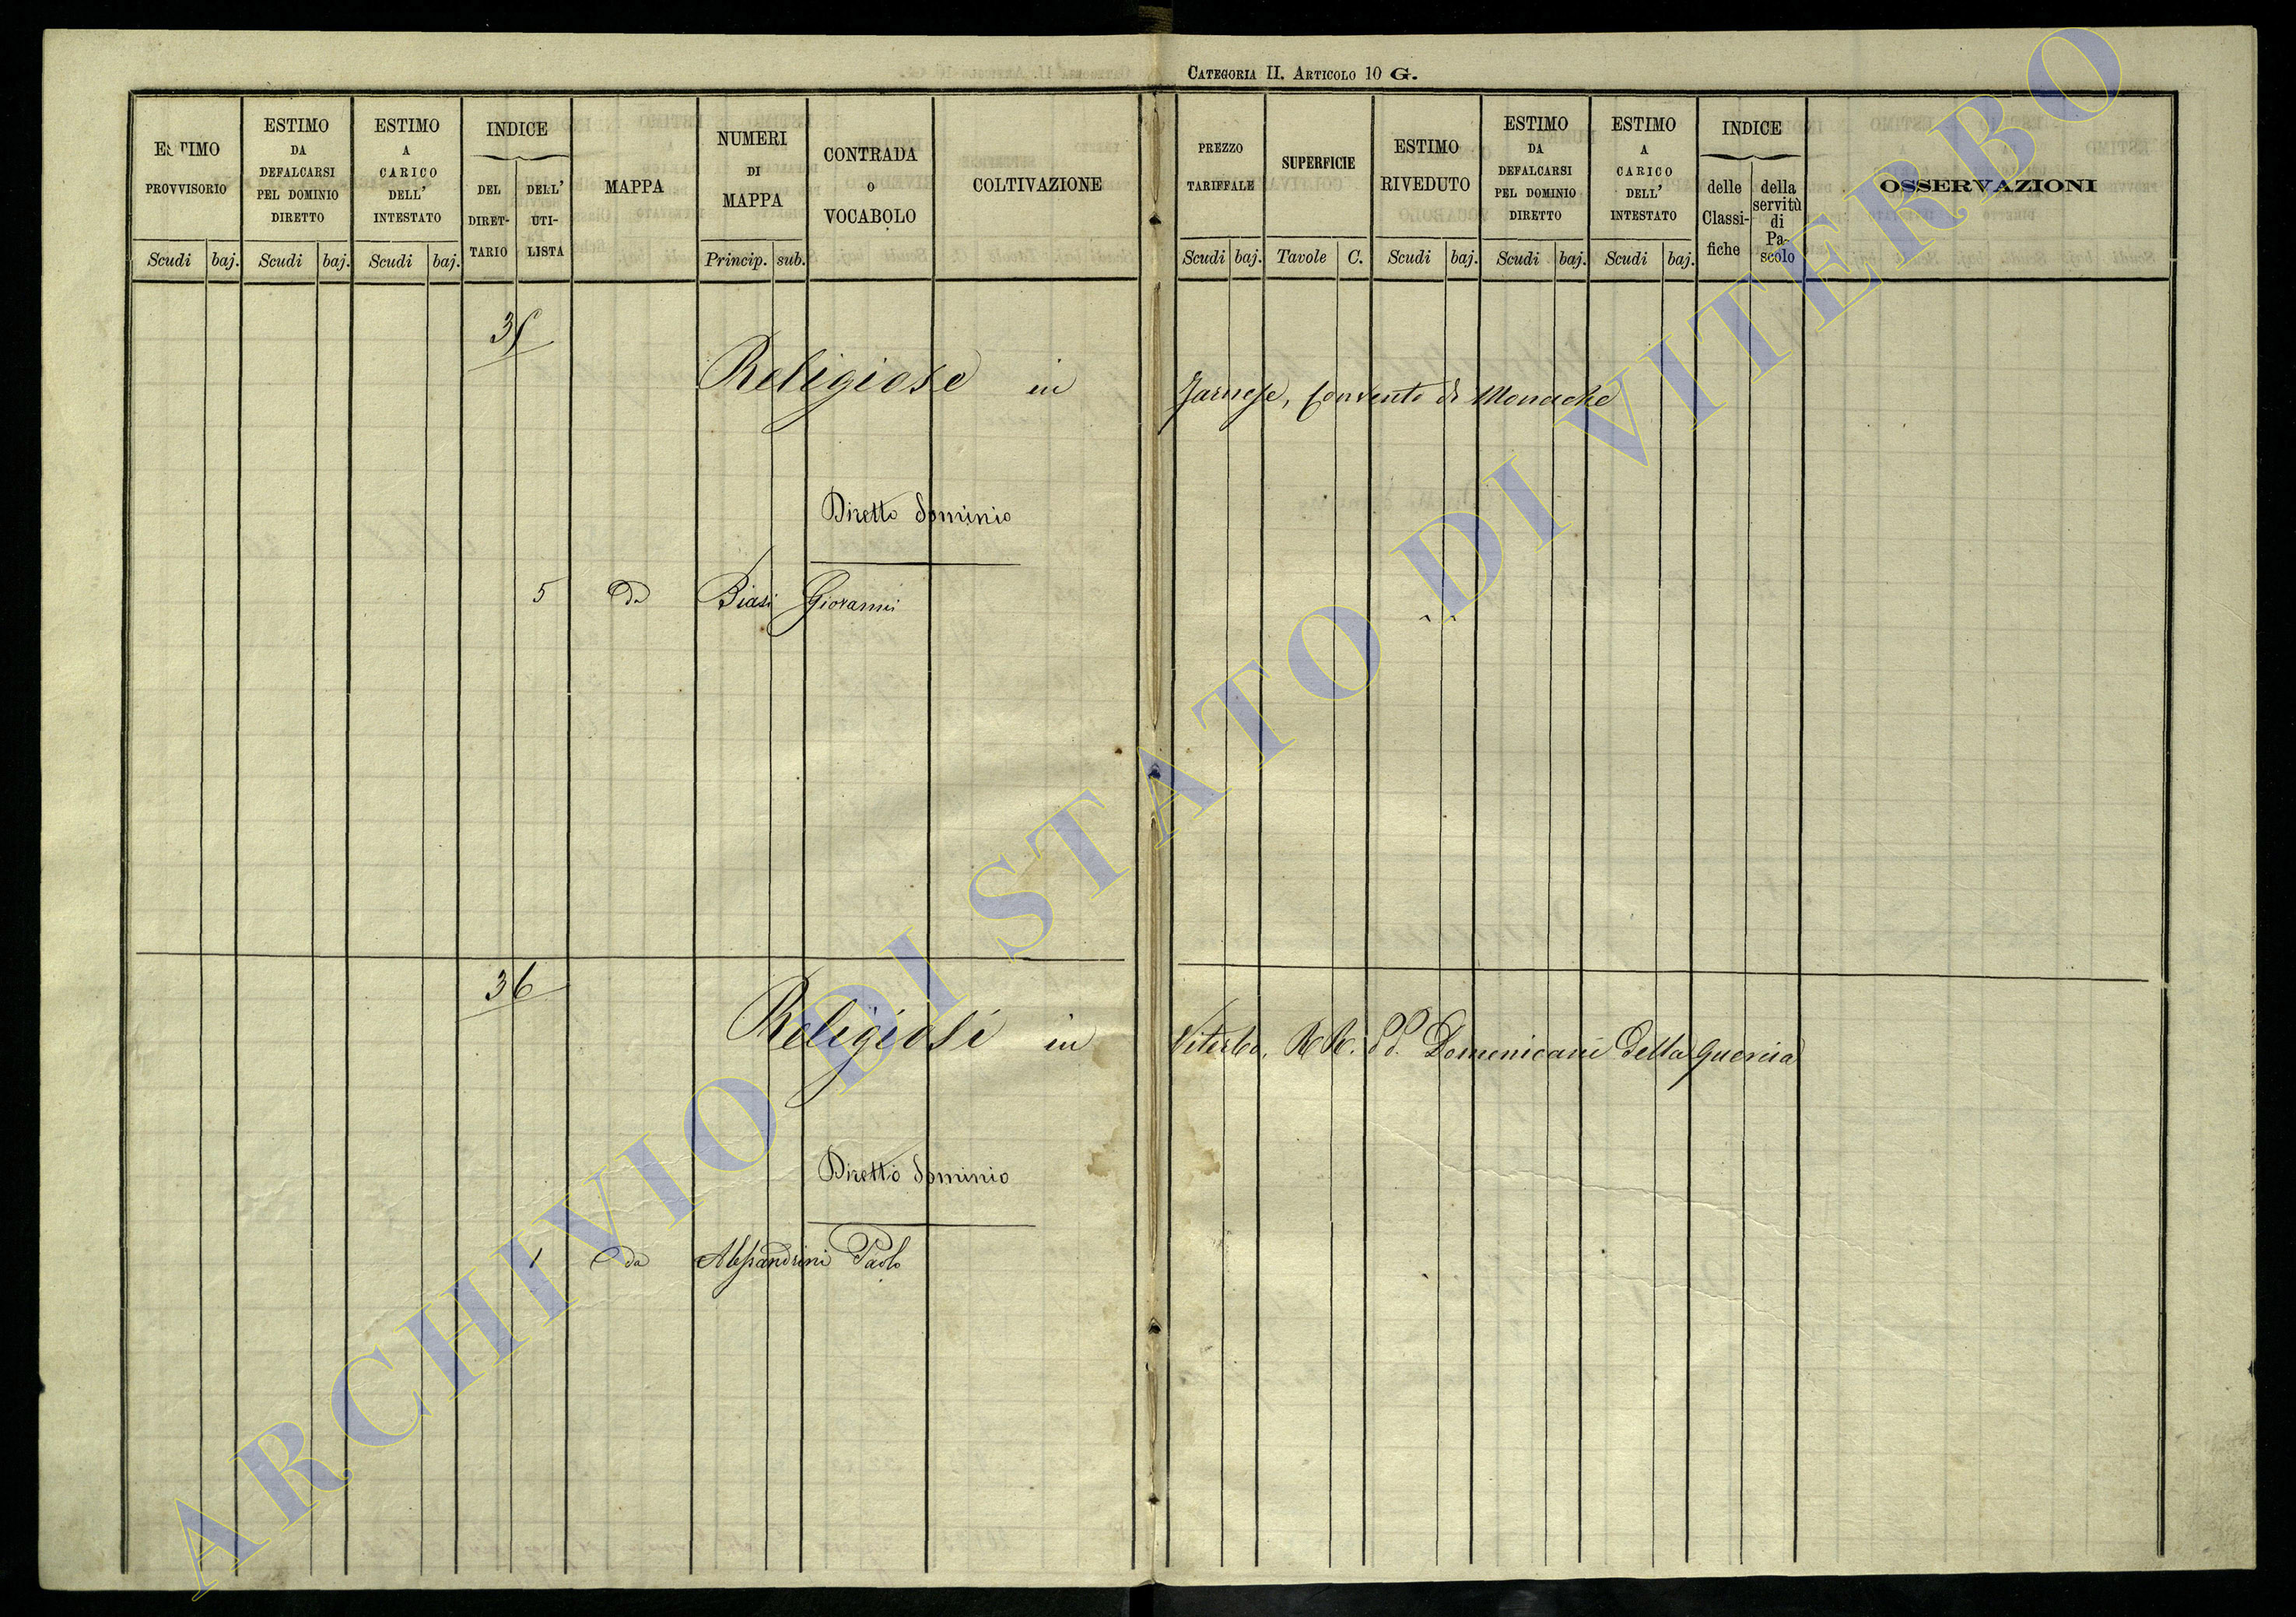 CATEGORIA II. ARTICOLO 10 G.
ESTIMO PROVVISORIO Scudi baj.
ESTIMO DA DEFALCARSI PEL DOMINIO DIRETTO Scudi baj.
ESTIMO A CARICO DELL' INTESTATO Scudi baj.
INDICE DEL DIRET- TARIO DELL' UTI- LISTA
MAPPA
NUMERI DI MAPPA Princip. sub.
CONTRADA O VOCABOLO
COLTIVAZIONE
PREZZO TARIFFALE Scudi baj.
SUPERFICIE Tavole C.
ESTIMO RIVEDUTO Scudi baj.
ESTIMO DA DEFALCARSI PEL DOMINIO DIRETTO Scudi baj.
ESTIMO A CARICO DELL' INTESTATO Scudi baj.
INDICE delle Classi- fiche della servitù di Pa- scolo
OSSERVAZIONI
35
Religiose in Farnese, Convento di Monache
Diretto dominio
5 da Biasi Giovanni
36
Religiosi in Viterbo, RR. PP. Domenicani della Quercia
Diretto dominio
1 da Alessandrini Paolo
ARCHIVIO DI STATO DI VITERBO